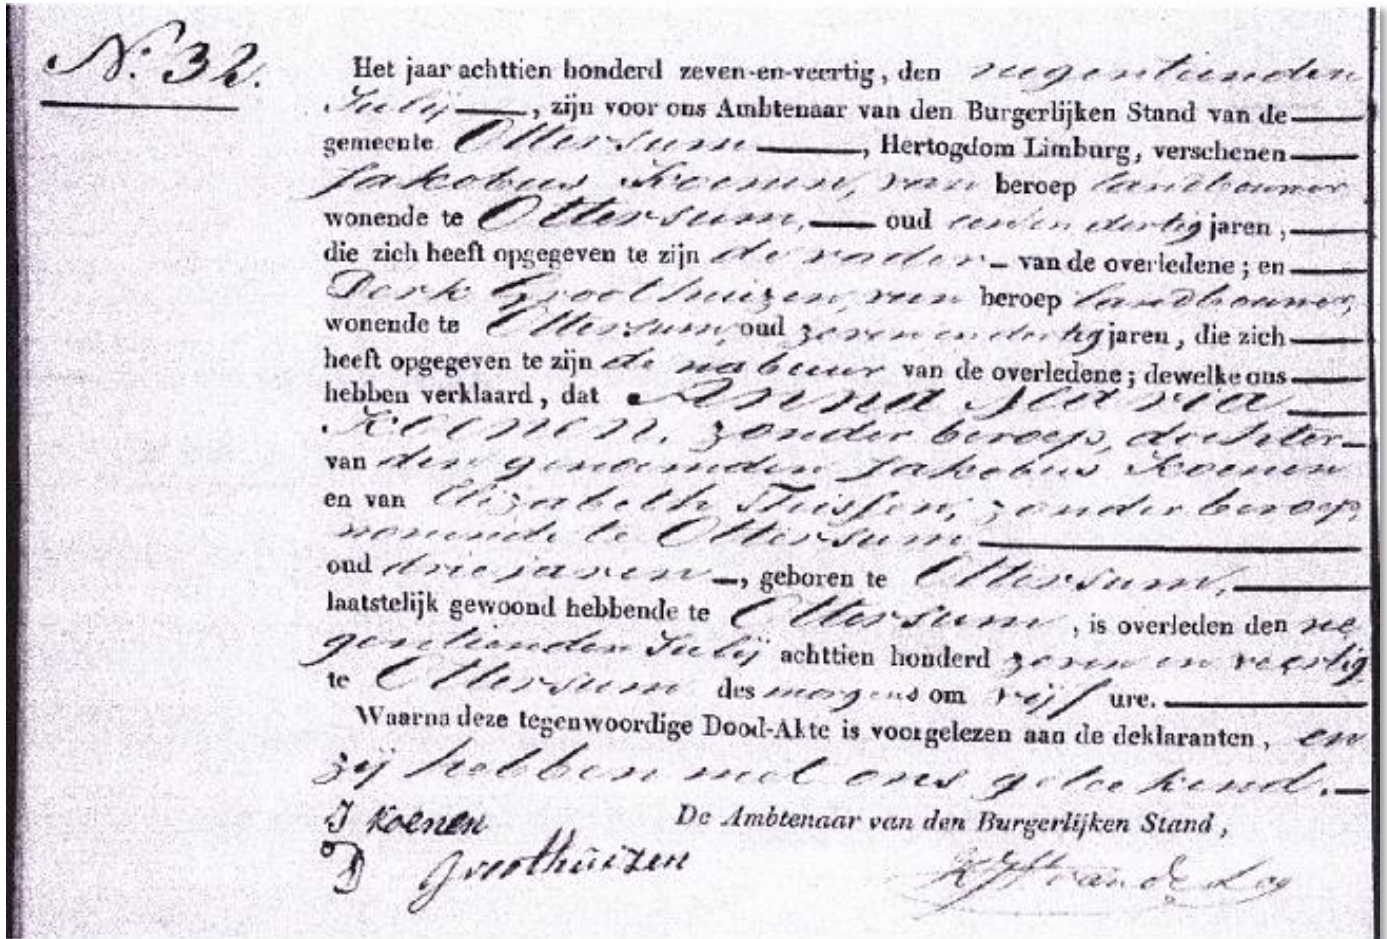 N.º 32.
Het jaar achttien honderd zeven-en-veertig, den negentienden
Julij, zijn voor ons Ambtenaar van den Burgerlijken Stand van de
gemeente Ottersum, Hertogdom Limburg, verschenen
Jakobus Koenen, van beroep landbouwer
wonende te Ottersum, oud een en dertig jaren,
die zich heeft opgegeven te zijn de vader van de overledene; en
Derk Groothuizen, van beroep landbouwer,
wonende te Ottersum, oud zeven en dertig jaren, die zich
heeft opgegeven te zijn de nabuur van de overledene; dewelke ons
hebben verklaard, dat Anna Maria
Koenen, zonder beroep, dochter
van den genoemden Jakobus Koenen
en van Elizabeth Thissen, zonder beroep,
wonende te Ottersum
oud drie jaren, geboren te Ottersum,
laatstelijk gewoond hebbende te Ottersum, is overleden den ne
gentienden Julij achttien honderd zeven en veertig
te Ottersum des morgens om vijf ure.
Waarna deze tegenwoordige Dood-Akte is voorgelezen aan de deklaranten, en
zij hebben met ons geteekend.
J Koenen
De Ambtenaar van den Burgerlijken Stand,
D Groothuizen
van de Loo